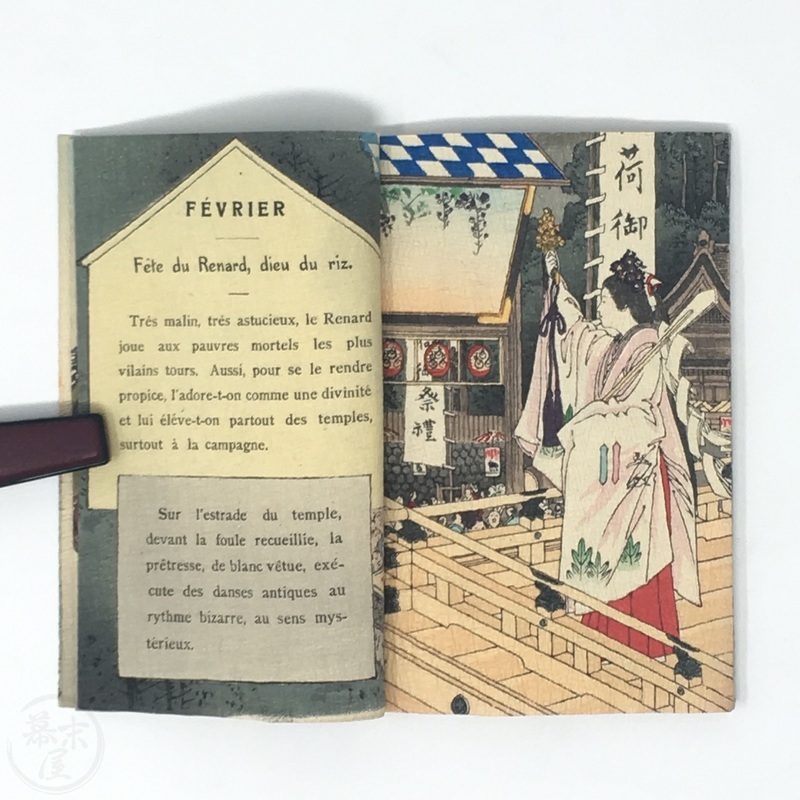 FÉVRIER
Fête du Renard, dieu du riz.
Très malin, très astucieux, le Renard
joue aux pauvres mortels les plus
vilains tours. Aussi, pour se le rendre
propice, l'adore-t-on comme une divinité
et lui élève-t-on partout des temples,
surtout à la campagne.
Sur l'estrade du temple,
devant la foule recueillie, la
prêtresse, de blanc vêtue, exé-
cute des danses antiques au
rythme bizarre, au sens mys-
térieux.
荷御
祭禮
幕末屋